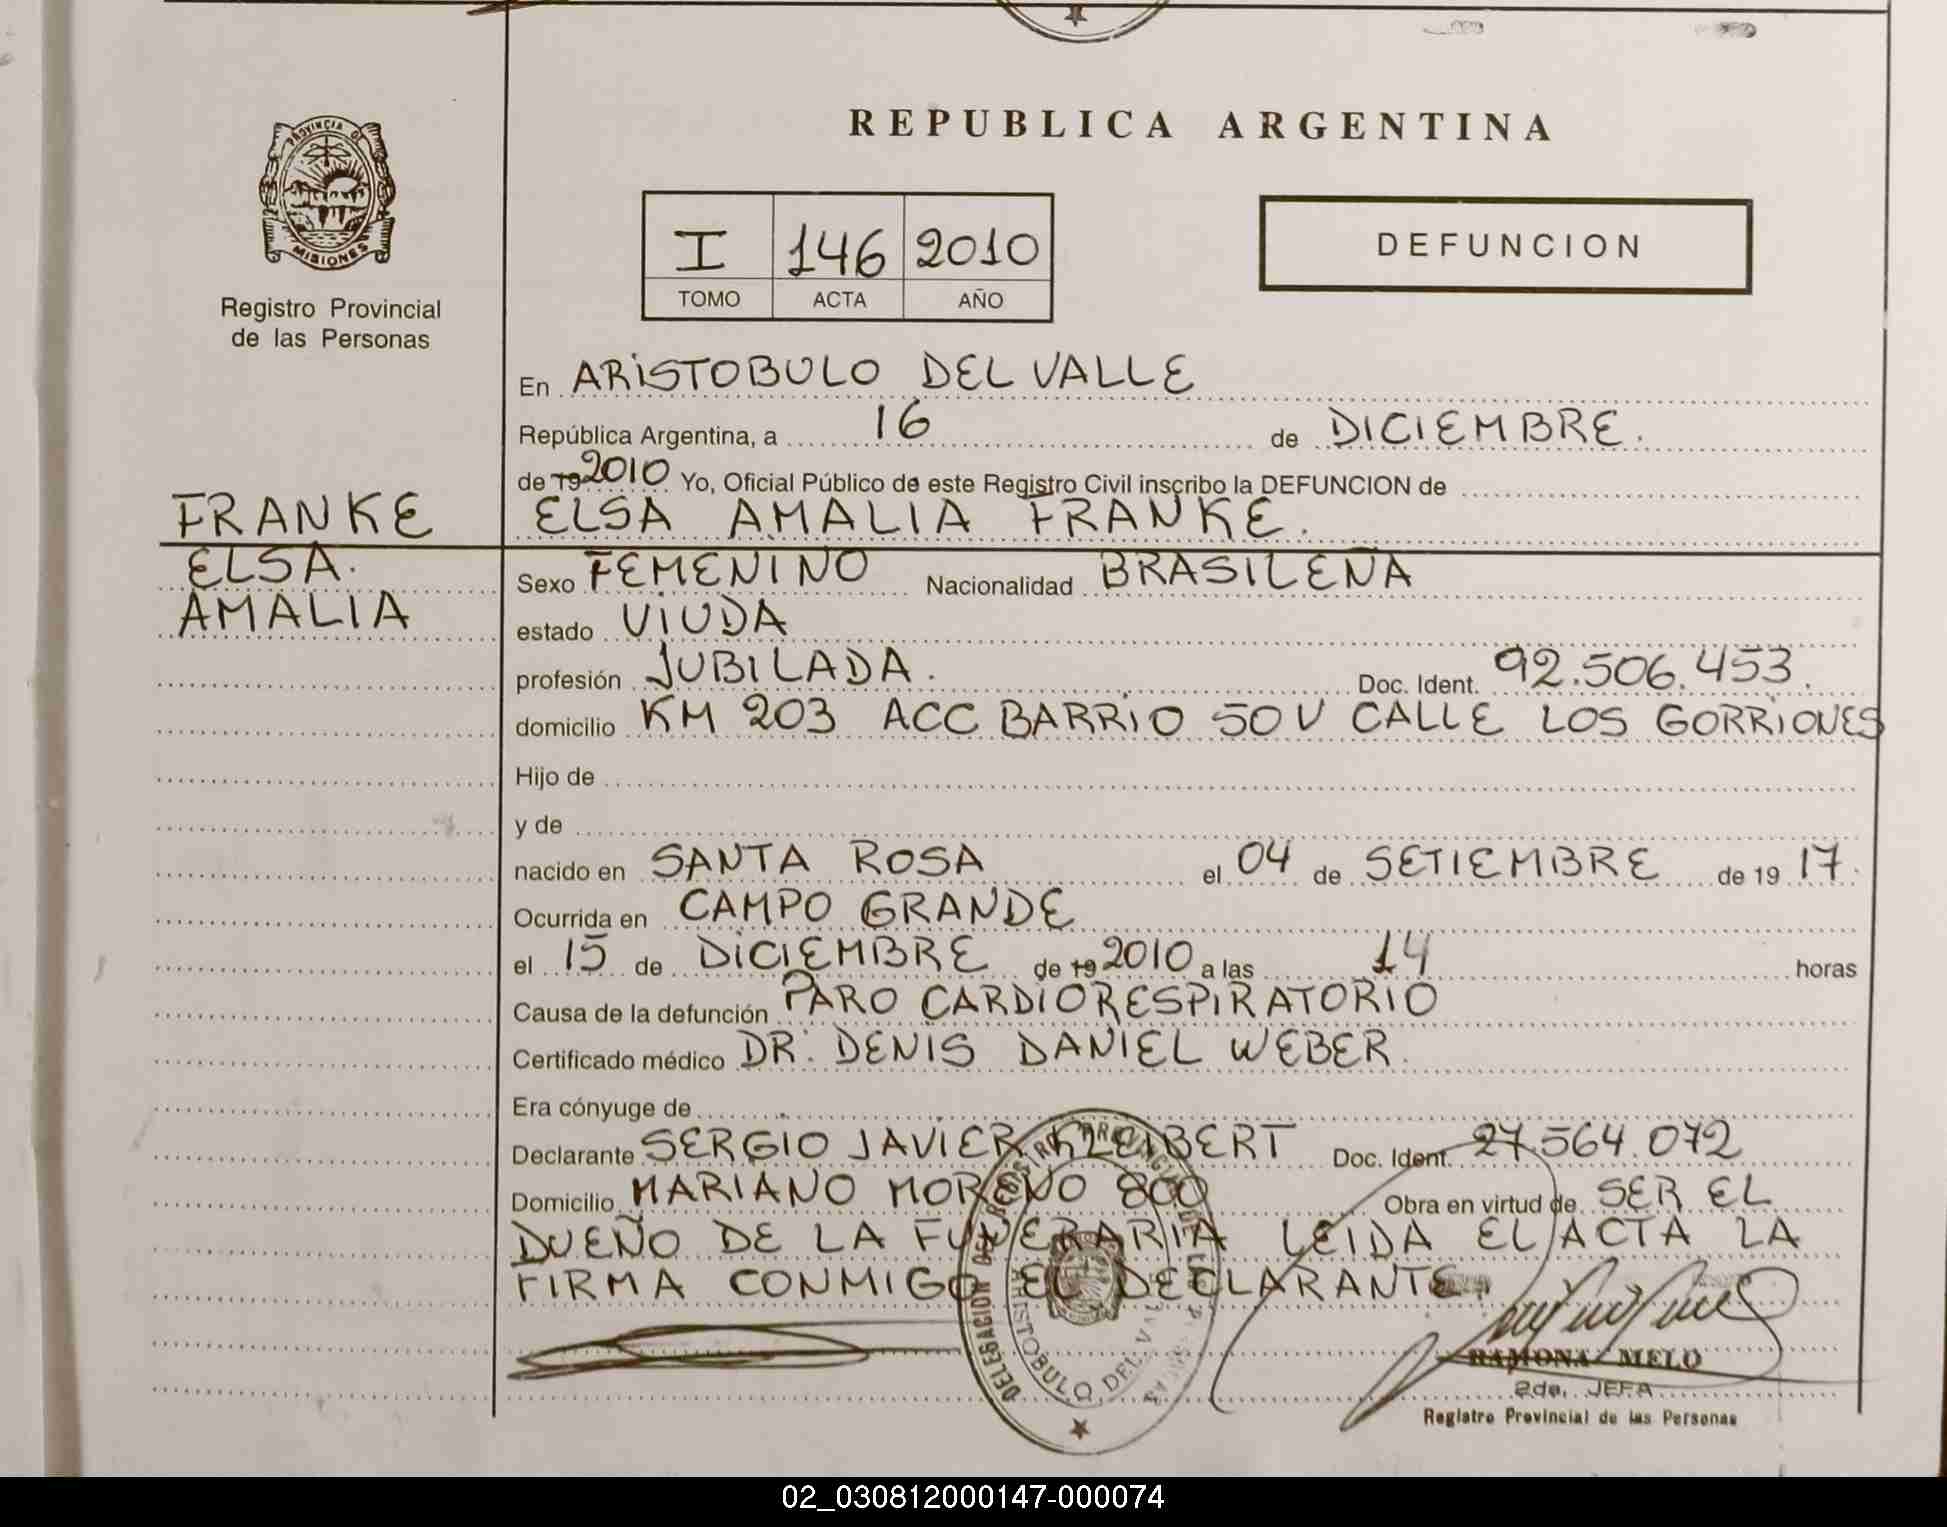 PROVINCIA DE
MISIONES
Registro Provincial
de las Personas
REPUBLICA ARGENTINA
I 146 2010
TOMO ACTA AÑO
DEFUNCION
En ARISTOBULO DEL VALLE
República Argentina, a 16 de DICIEMBRE.
de 19 2010 Yo, Oficial Público de este Registro Civil inscribo la DEFUNCION de
FRANKE ELSA AMALIA FRANKE.
ELSA. Sexo FEMENINO Nacionalidad BRASILEÑA
AMALIA estado VIUDA
profesión JUBILADA. Doc. Ident. 92.506.453.
domicilio KM 203 ACC BARRIO 50 V CALLE LOS GORRIONES
Hijo de
y de
nacido en SANTA ROSA el 04 de SETIEMBRE de 19 17.
Ocurrida en CAMPO GRANDE
el 15 de DICIEMBRE de 19 2010 a las 14 horas
Causa de la defunción PARO CARDIORESPIRATORIO
Certificado médico DR. DENIS DANIEL WEBER.
Era cónyuge de
Declarante SERGIO JAVIER KLEIBERT Doc. Ident. 27.564.072
Domicilio MARIANO MORENO 800 Obra en virtud de SER EL
DUEÑO DE LA FUNERARIA LEIDA EL ACTA LA
FIRMA CONMIGO EL DECLARANTE.
DELEGACION DEL REGISTRO PROVINCIAL DE LAS
ARISTOBULO DEL VALLE
RAMONA MELO
2da. JEFA
Registro Provincial de las Personas
02_030812000147-000074